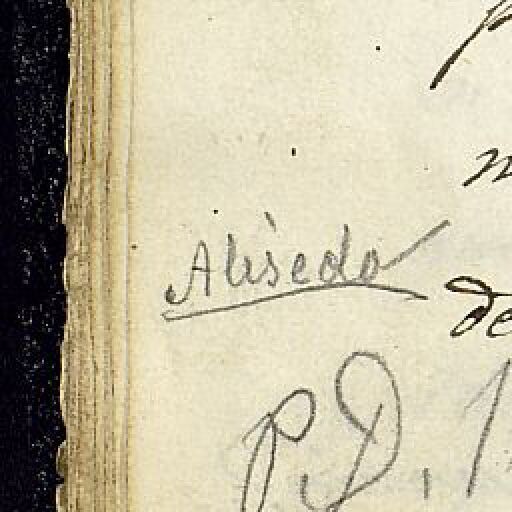 Alisedo
de
P.D.